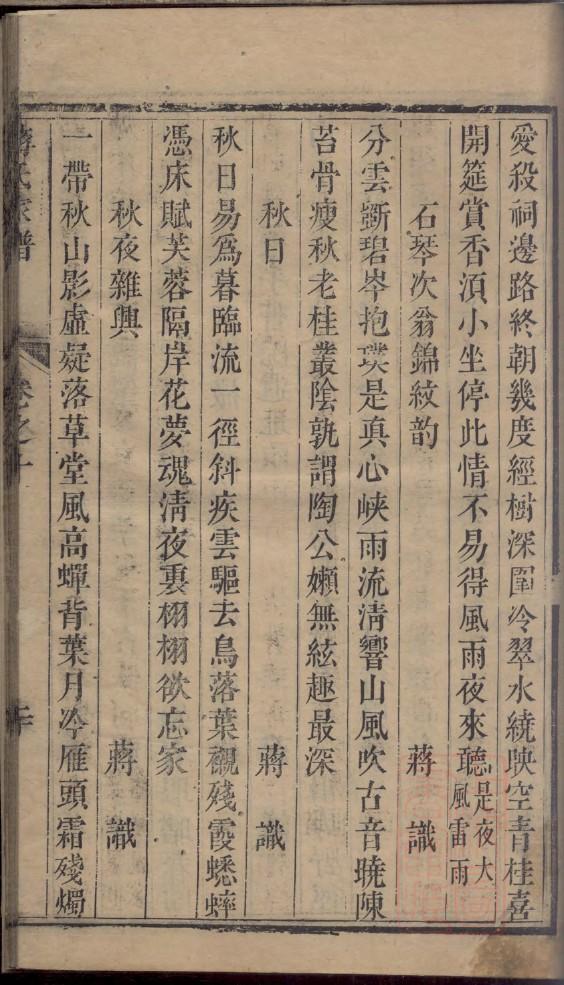 愛殺祠邊路終朝幾度經樹深圍冷翠水繞映空青桂喜
開筵賞香湏小坐停此情不易得風雨夜來聽是夜大風雷雨
石琴次翁錦紋韵 蔣識
分雲斵碧岑抱璞是真心峡雨流清響山風吹古音曉陳
苔骨瘦秋老桂叢陰孰謂陶公嬾無絃趣最深
秋日 蔣識
秋日易爲暮臨流一徑斜疾雲驅去鳥落葉襯殘霞蟋蟀
憑床賦芙蓉隔岸花夢魂淸夜裏栩栩欲忘家
秋夜雜興 蔣識
一帶秋山影虛凝落草堂風高蟬背葉月冷雁頭霜殘燭
蔣氏家譜 卷之十